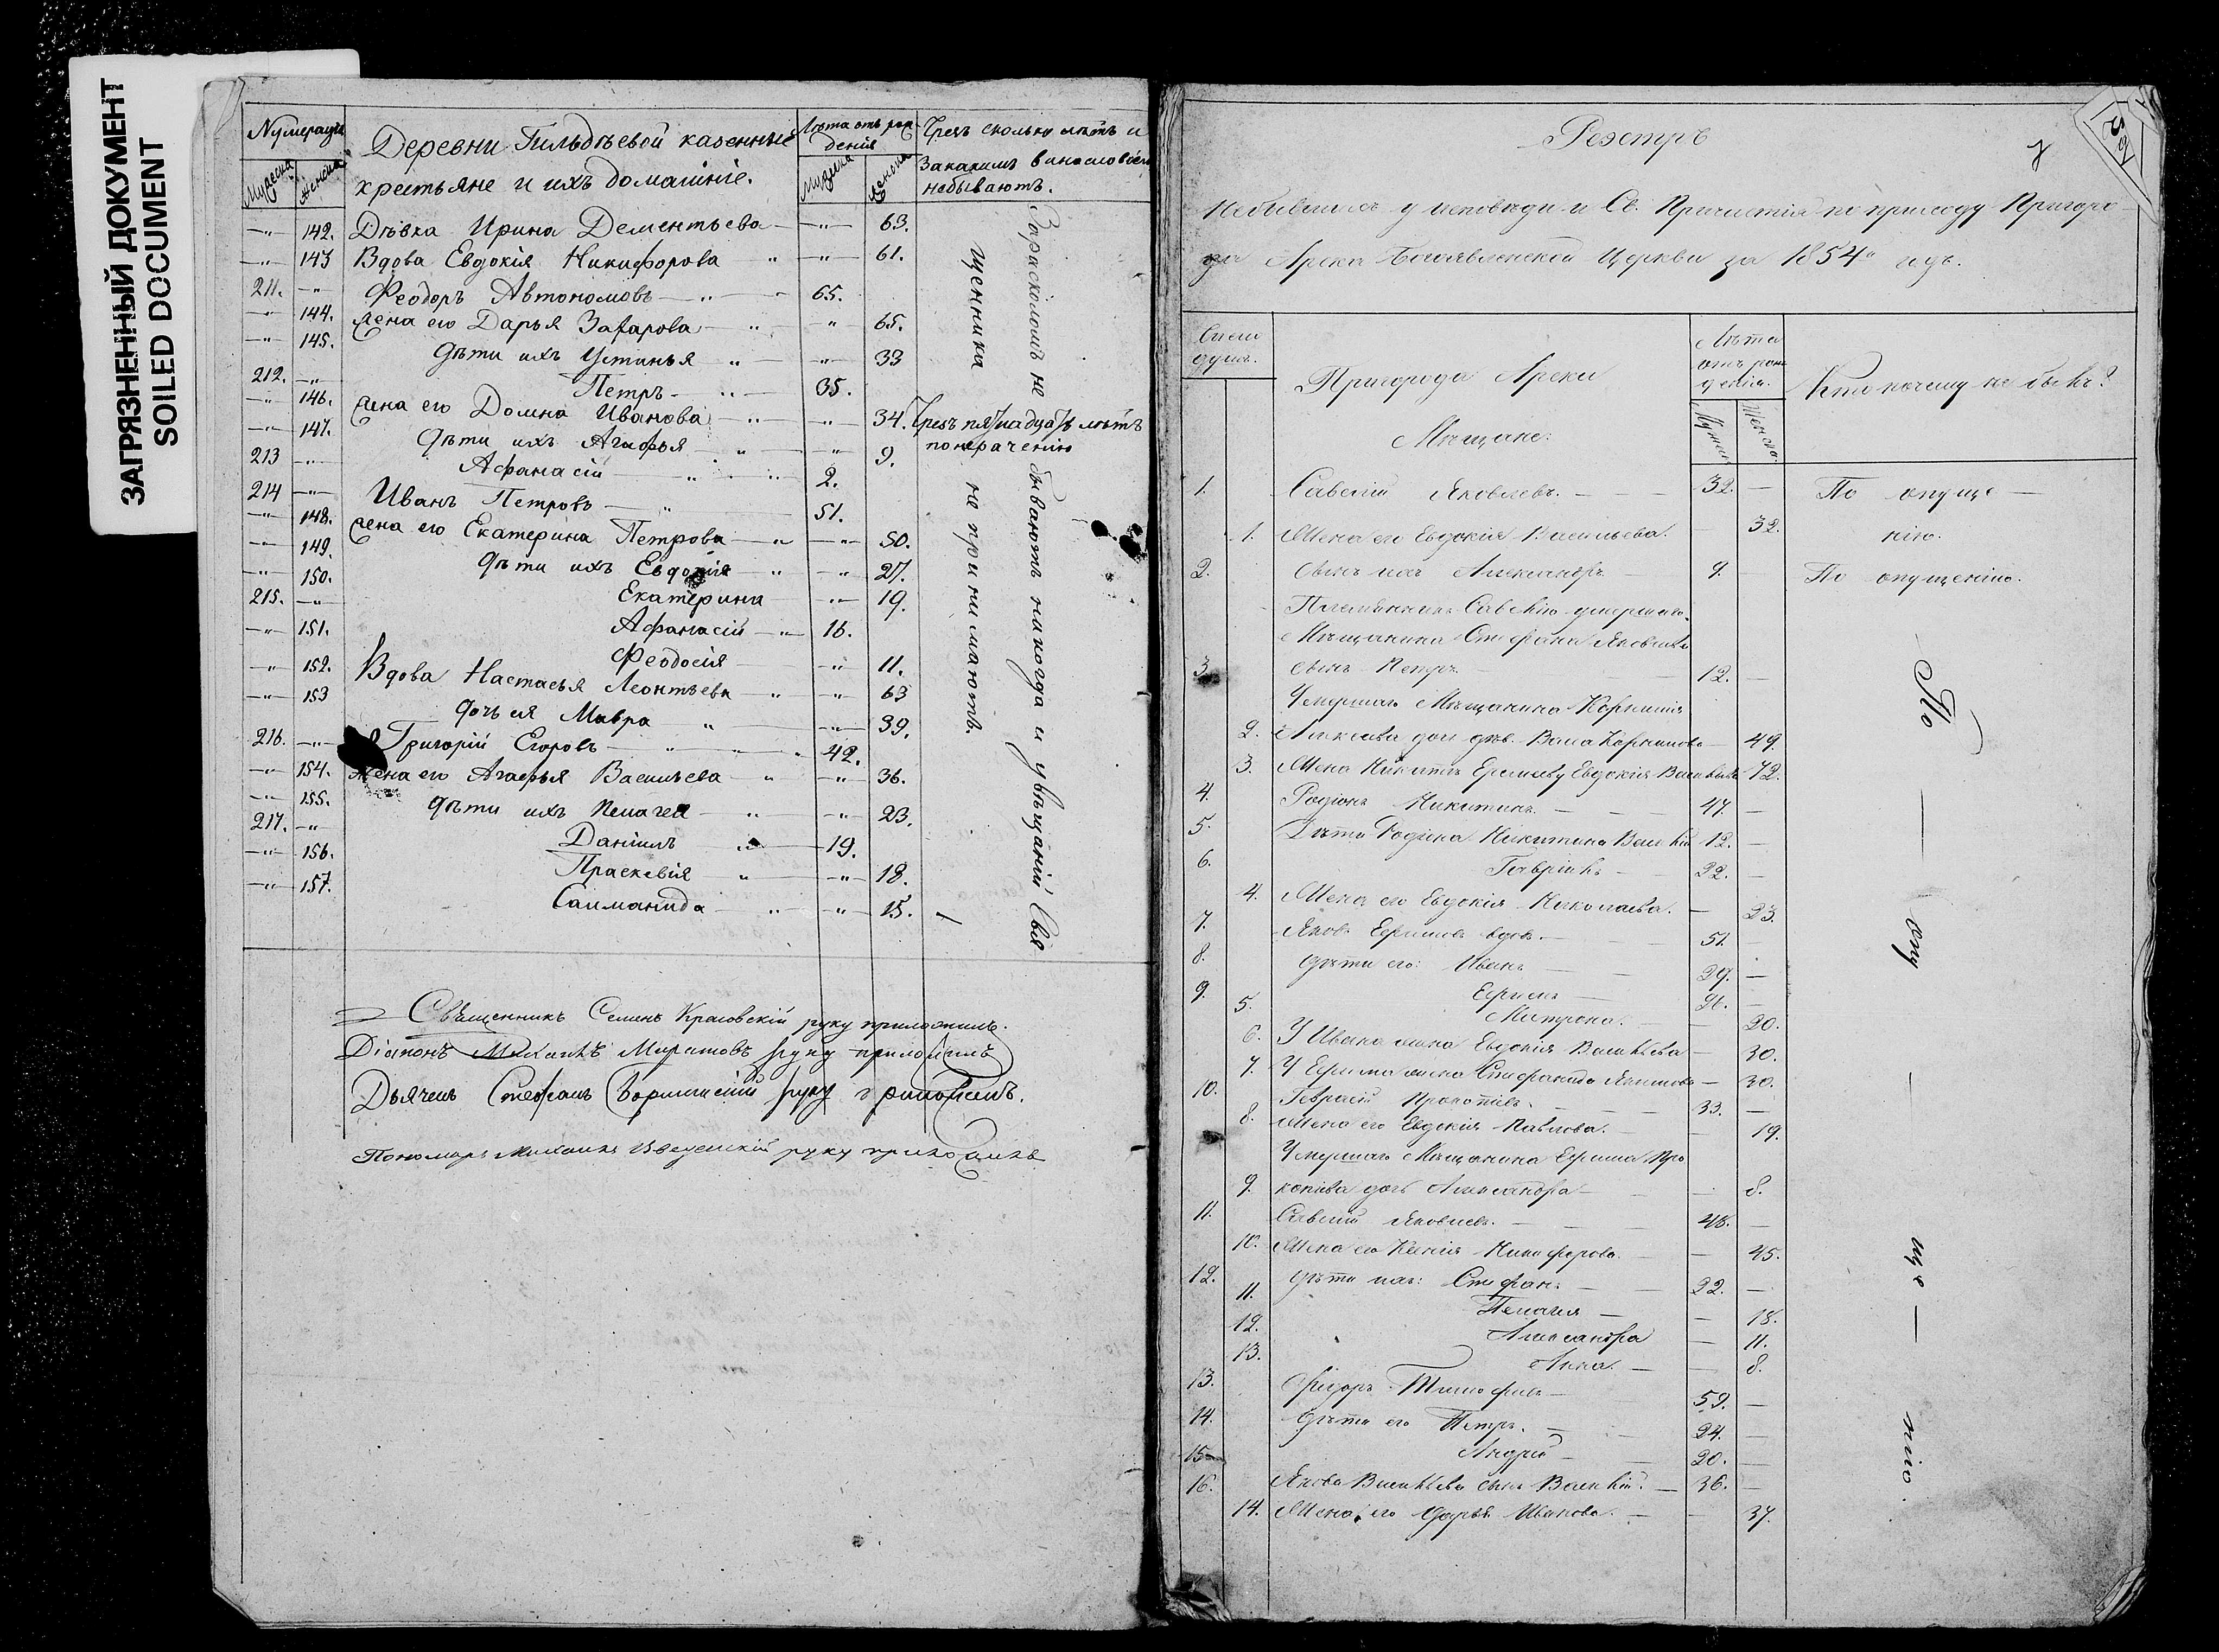 ЗАГРЯЗНЕННЫЙ ДОКУМЕНТ
SOILED DOCUMENT
Нумерація
Деревни Гильдѣевой казенные
крестьяне и ихъ домашніе.
Лѣта отъ рож
денія
Чрезъ сколько лѣтъ и
За какимъ винословіем
небываютъ.
Мужеска
Женска
Мужеска
Женска
—"— 142. Дѣвка Ирина Дементьева —"— 63.
—"— 143 Вдова Евдокія Никифорова " —"— 61.
211. —"— Феодоръ Автономовъ —"— 65.
—"— 144. Жена его Дарья Захарова —"— " 65.
—"— 145. Дѣти ихъ Устинья " —"— 33
212. —"— Петръ —"— 35.
—"— 146. Жена его Домна Иванова —"— —"— 34. Чрезъ пятнадцать лѣтъ
понераченію
—"— 147. Дѣти ихъ Агафья —"— —"— 9.
213 —"— Афанасій —"— 2.
214 —"— Иванъ Петровъ —"— 51.
—"— 148. Жена его Екатерина Петрова —"— —"— 50.
—"— 149. Дѣти ихъ Евдокія —"— —"— 27.
—"— 150. Екатерина —"— 19.
215. —"— Афанасій —"— 16.
—"— 151. Феодосія —"— 11.
—"— 152. Вдова Настасья Леонтьева " —"— 63
—"— 153 Дочь ея Мавра —"— —"— 39.
216. —"— Григорій Егоровъ —"— 42.
—"— 154. Жена его Агафья Васильева " —"— 36.
—"— 155. Дѣти ихъ Пелагея —"— —"— 23.
217. —"— Даніилъ —"— 19.
—"— 156. Праскевія " —"— 18.
—"— 157. Саиманида " —"— 15.
За расколомъ не бываютъ никогда и увѣщаній Свя
щенника не принимаютъ.
Священникъ Семенъ Красовскій руку приложилъ.
Діаконъ Михаилъ Муратовъ руку приложилъ
Дьячекъ Стефанъ руку приложилъ.
Пономарь Михаилъ Введенскій руку приложилъ
Реэстръ
Небывшихъ у исповѣди и Св. Причастія по приходу Пригоро
да Арска Богоявленской Церкви за 1854й годъ.
Число
душъ.
Пригорода Арска
Мѣщане:
Лѣта
отъ рож
денія.
Мужеск.
Женска.
Кто почему не былъ?
1. Савелій Яковлевъ. — 32. — По опуще —
1. Жена его Евдокія Васильева. — 32. нію.
2. Сынъ ихъ Александръ — 9. По опущенію.
Племянникъ Савелію умершаго
Мѣщанина Стефана Яковлева
3 сынъ Петръ. — 12. —
Умершаго Мѣщанина Корнилія
2. Алексѣева дочь дѣв. Васа Корнилова — 49.
3. Жена Никиты Еремѣева Евдокія Васильева 72.
4. Родіонъ Никитинъ. — 47. —
5. Дѣти Родіона Никитина Василій 12. —
6. Гавріилъ — 22. —
4. Жена его Евдокія Николаева. — 23.
7. Яковъ Ефимовъ вдов. — 51. —
8. Дѣти его: Иванъ — 29. —
9. Ефимъ — 26. —
5. Матрона. — 20.
6. У Ивана жена Евдокія Васильева — 30.
7. У Ефима жена Стефанида Якимова — 30.
10. Прокопіевъ. — 33. —
8. Жена его Евдокія Павлова. — 19.
Умершаго Мѣщанина Ефима Про
9. копіева дочь Александра — 8.
11. Савелій Яковлевъ. — 48. —
10. Жена его Ксенія Никифорова. — 45.
12. Дѣти ихъ: Стефанъ — 22. —
11. Пелагія — 18.
12. Александра — 11.
13. Анна. — 8.
13. Ѳедоръ Тимофѣевъ — 59. —
14. Дѣти его Петръ. — 24. —
15. Андрей — 20. —
16. Якова Васильева сынъ Василій. — 36. —
14. Жена его Дарья Иванова. — 37.
По — опу — ще — нію.